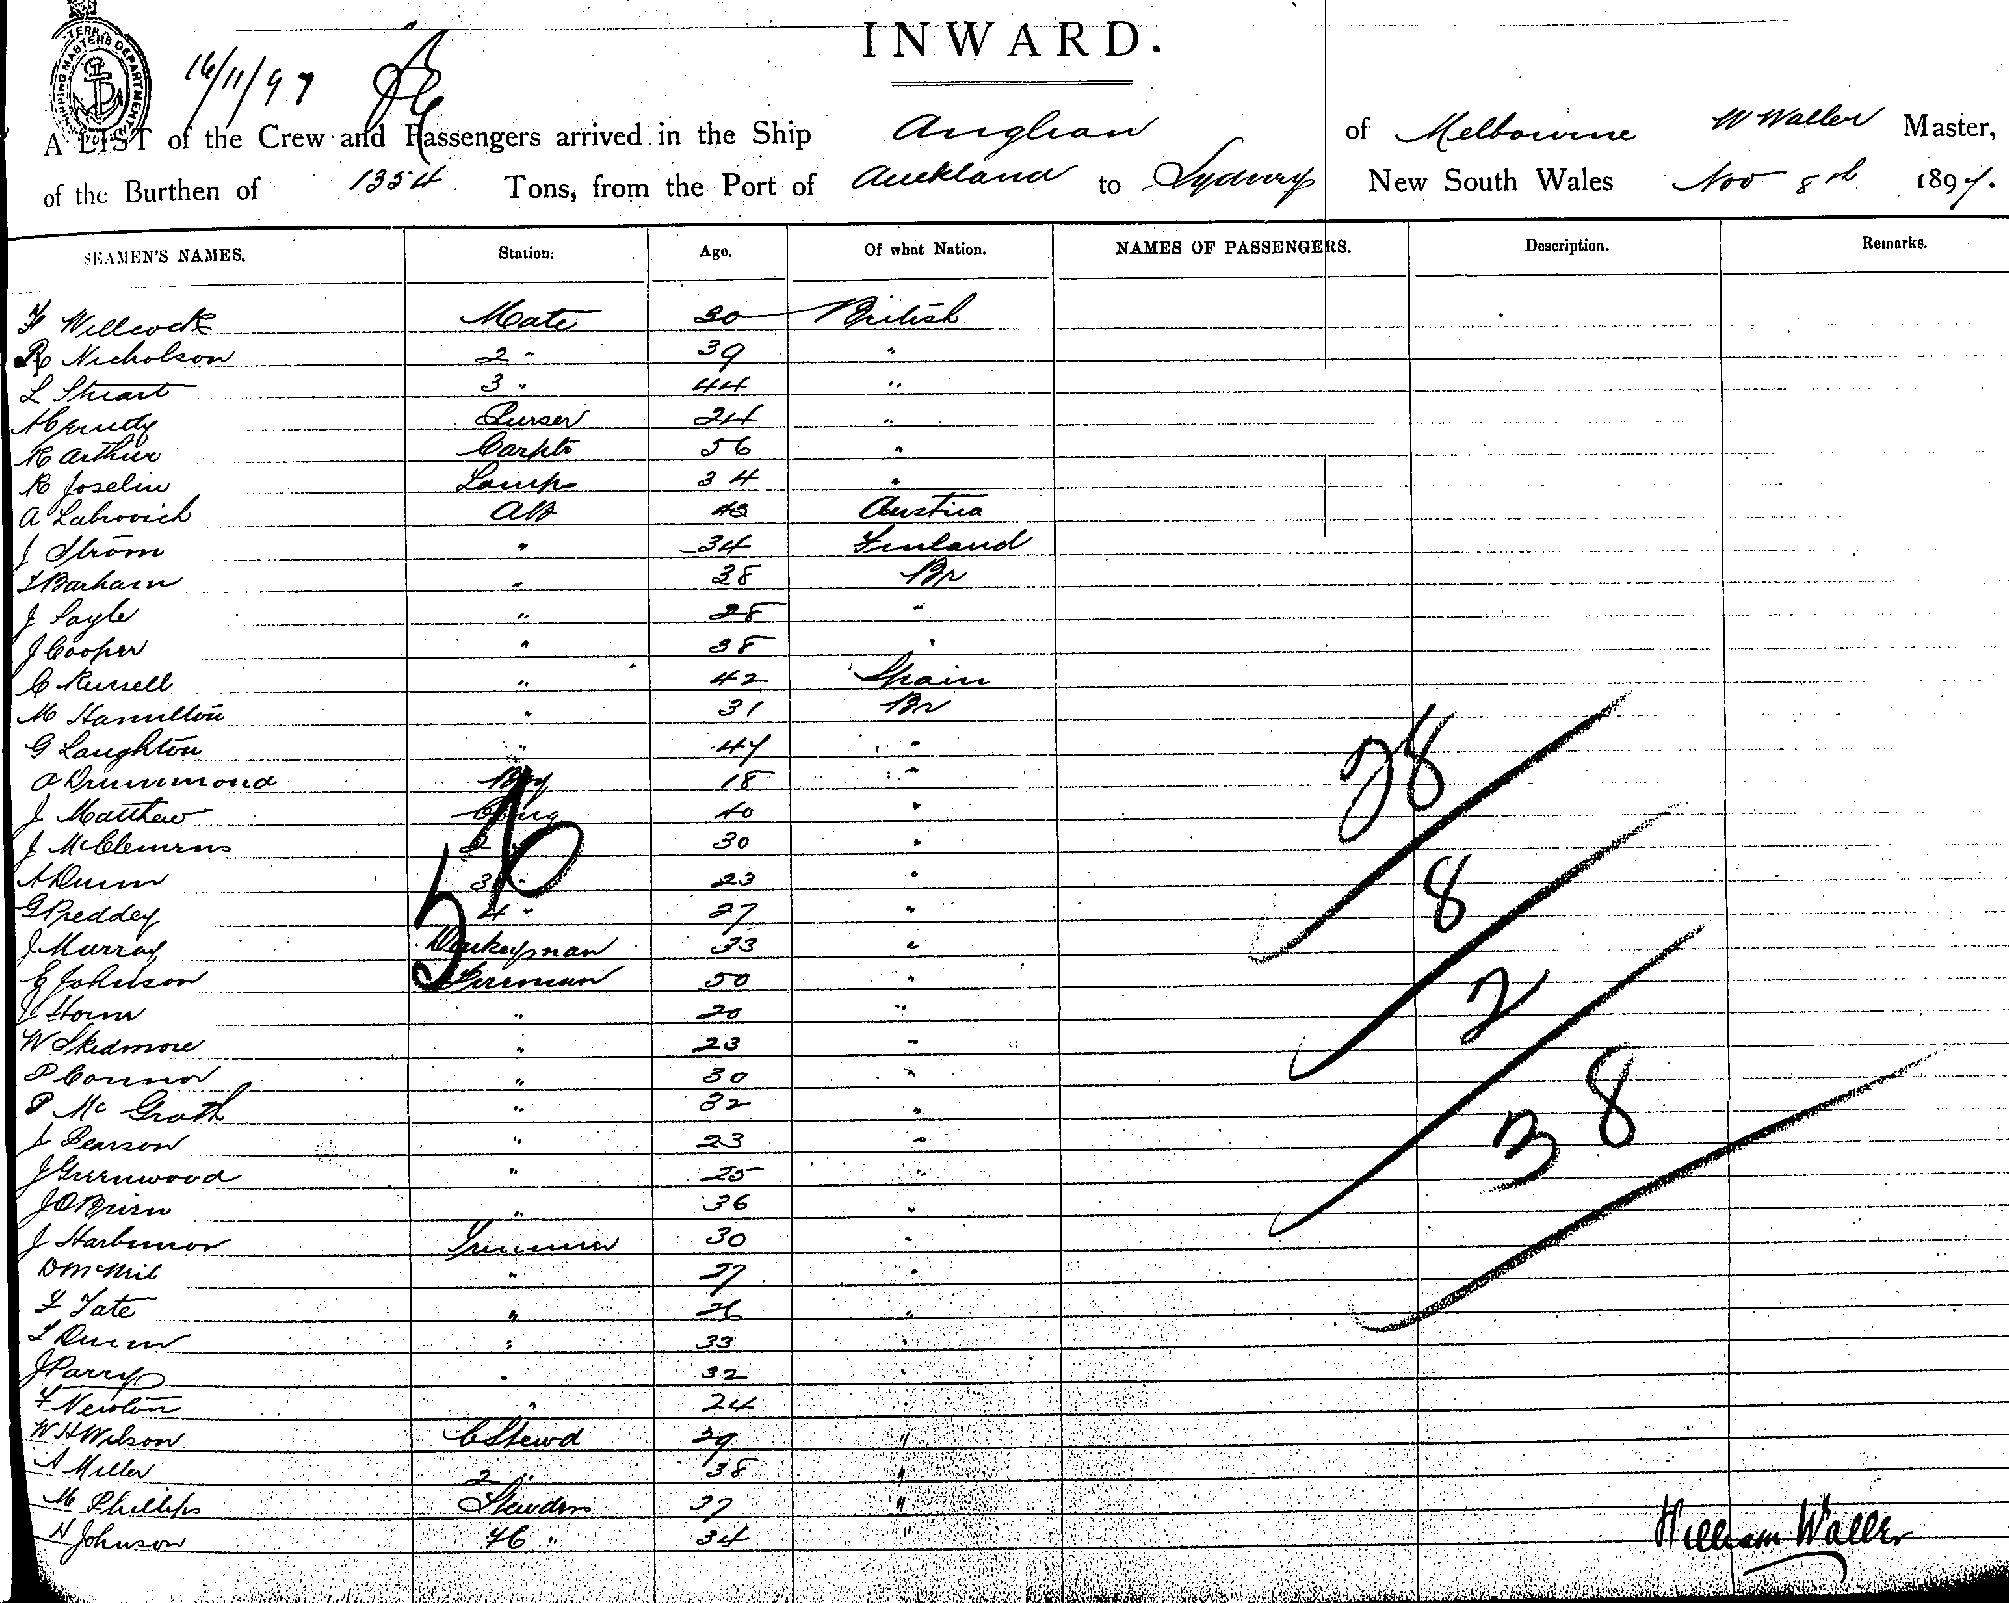 INWARD.
16/11/97
A LIST of the Crew and Passengers arrived in the Ship Anglian of Melbourne W Waller Master,
of the Burthen of 1354 Tons, from the Port of Auckland to Sydney New South Wales Nov 8th 1897.
SEAMEN'S NAMES. Station. Age. Of what Nation. NAMES OF PASSENGERS. Description. Remarks.
F Willcocks Mate 30 British
R Nicholson 2 " 39 "
L Stuart 3 " 44 "
Purser 24 "
R Arthur Carptr 56 "
R Joselin Lamps 34 "
A Labrovich AB 43 Austria
J Ström " 34 Finland
T Barham " 38 Br
J Sayle " 28 "
J Cooper " 38 "
C Russell " 42 Spain
M Hamilton " 31 Br
G Laughton " 47 "
O Drummond Boy 18 "
J Matthew C Eng 40 "
J McClemens 2 " 30 "
A Dunn 3 " 23 "
G Preddey 4 " 27 "
J Murray Donkeyman 33 "
E Johnson Fireman 50 "
J Storm " 20 "
W Skedmore " 23 "
P Connor " 30 "
P McGrath " 32 "
J Pearson " 23 "
J Greenwood " 25 "
J O'Brien " 36 "
J Harbinor Trimmer 30 "
D McNeil " 27 "
F Tate " 26 "
T Dunn " 33 "
J Parry " 32 "
F Newton " 24 "
W H Wilson C Stewd 29 "
A Miller 2 " 38 "
M Phillips Stewdess 37 "
H Johnson FC " 34 "
56
28
8
2
38
William Waller